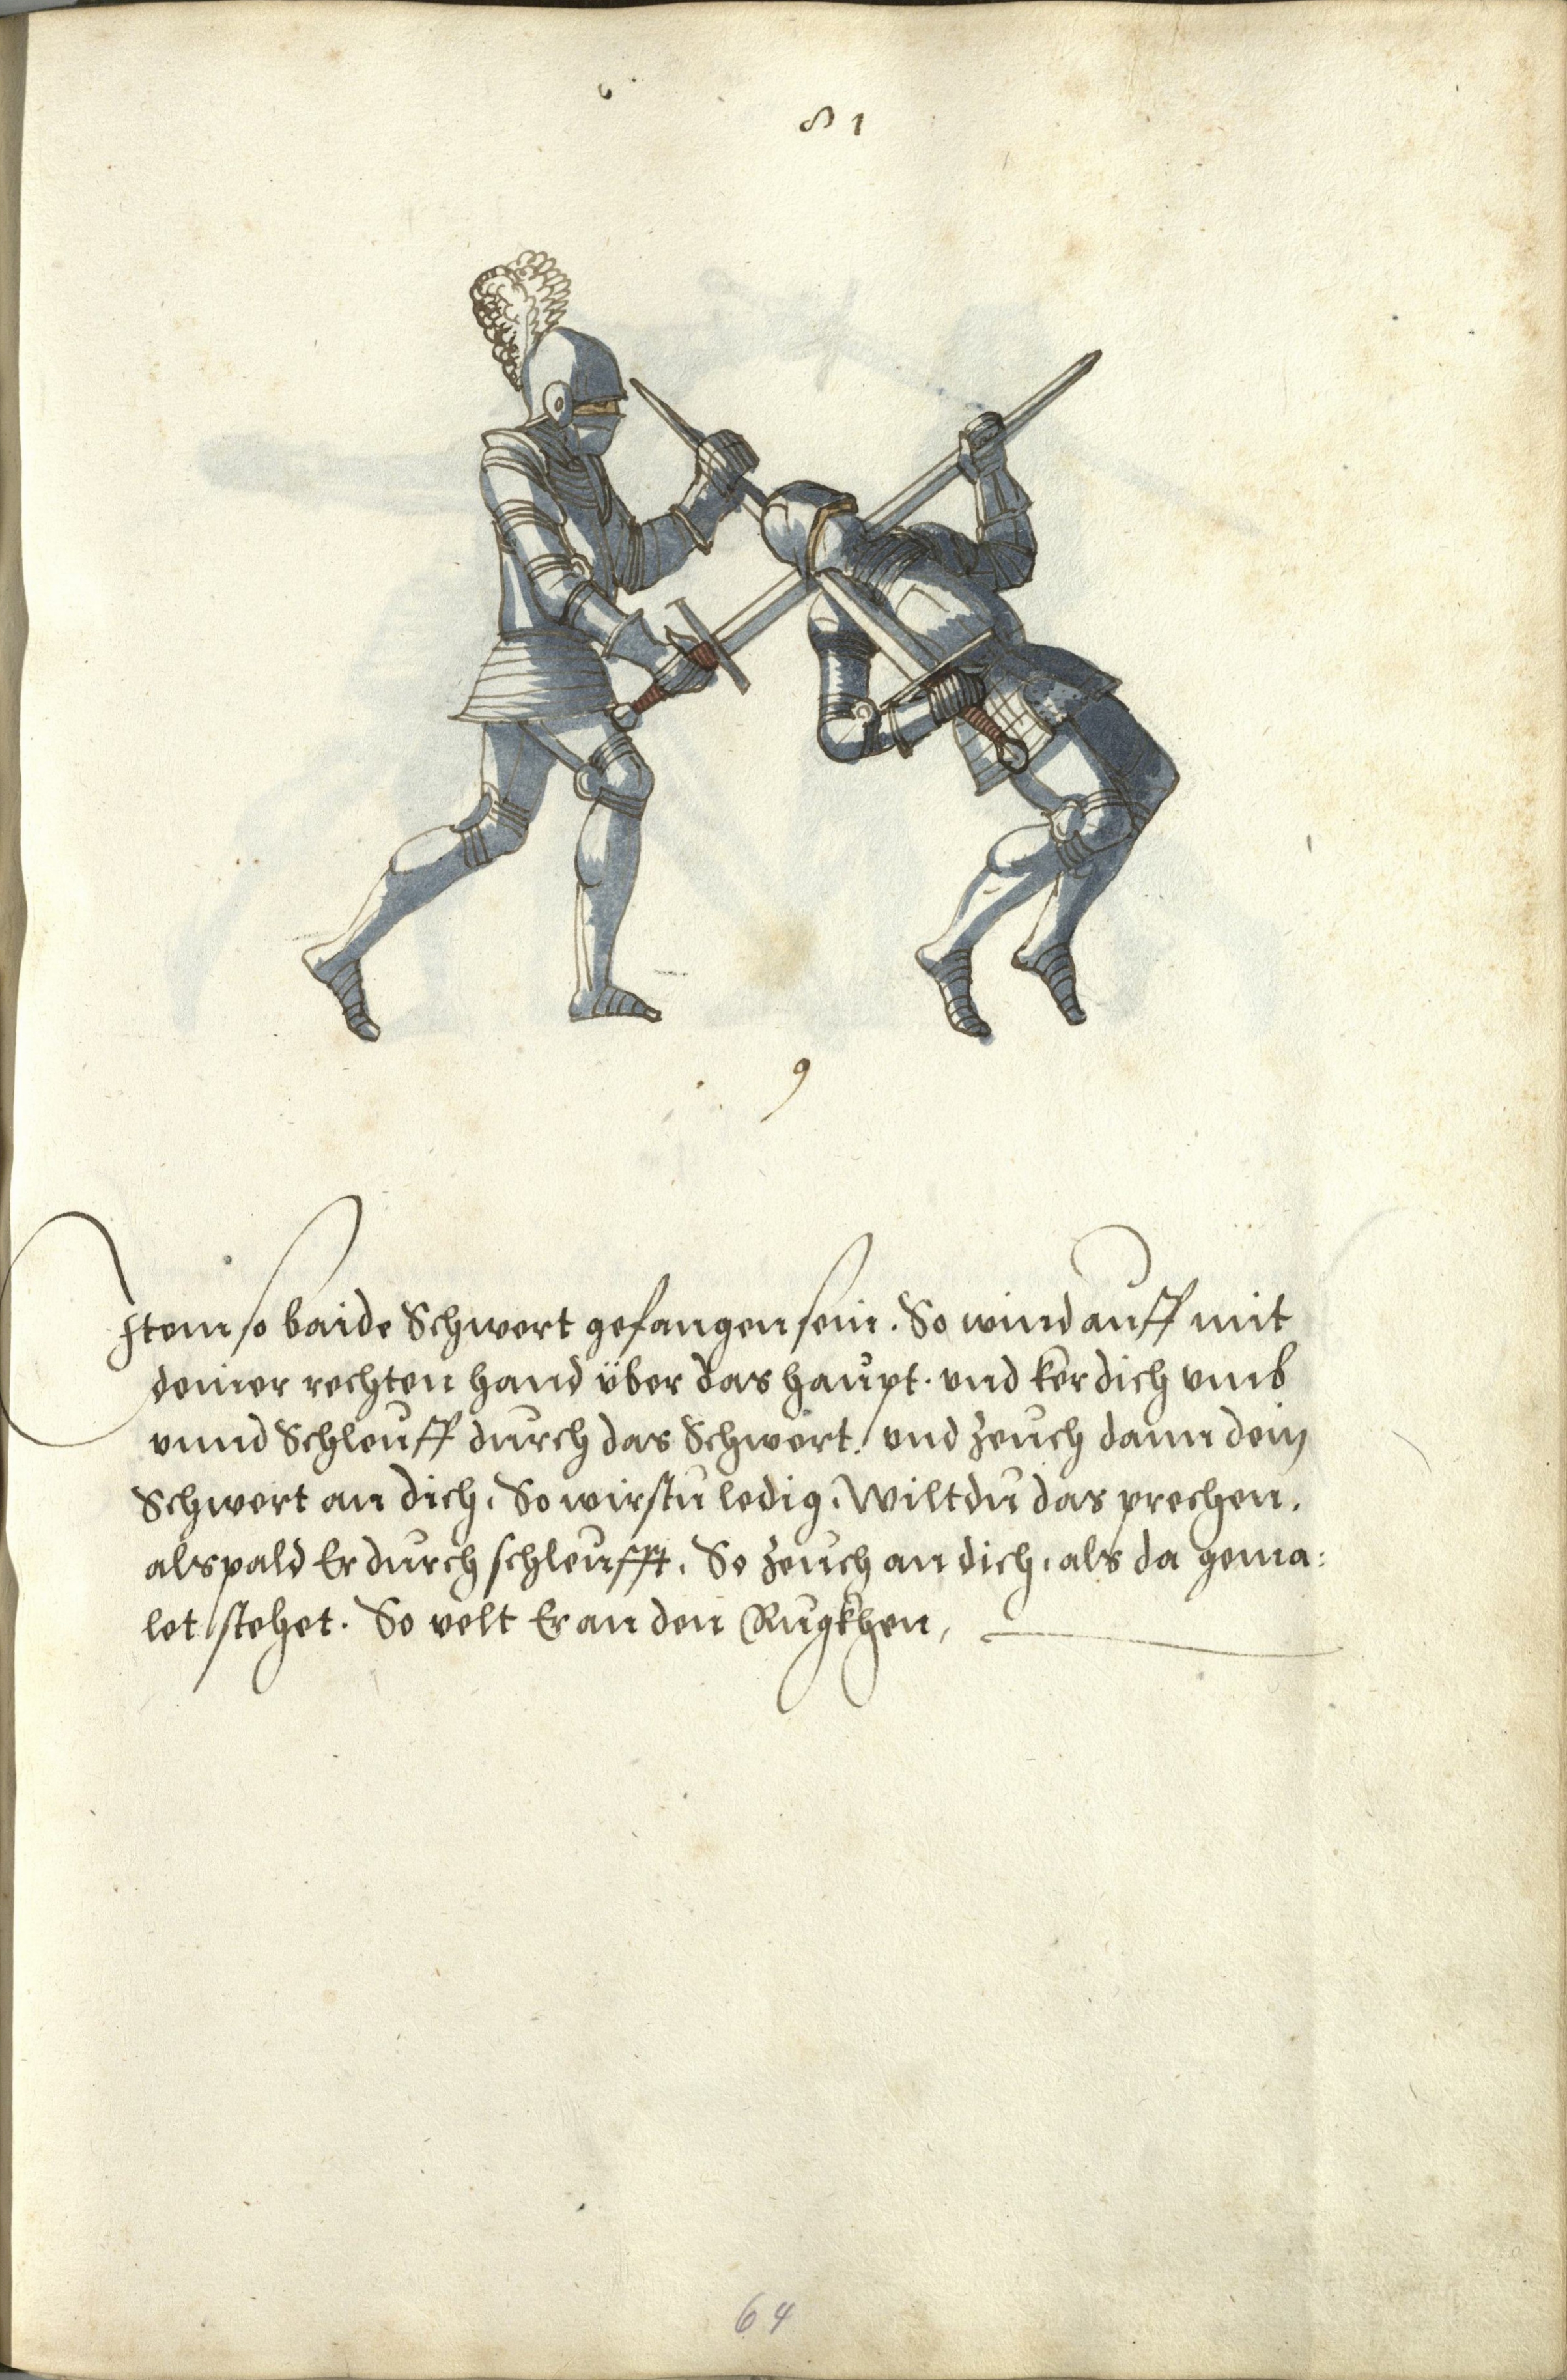 81
9
Item so baide Schwert gefangen sein. So wind auff mit
deiner rechten hand über das haupt. und ker dich umb
unnd Schleuff durch das Schwert. und zeuch dann dein
Schwert an dich. So wirstu ledig. Wiltdu das prechen.
als pald Er durch schleufft. So zeuch an dich, als da gema:
let stehet. So velt Er an den Rugkhen,
64